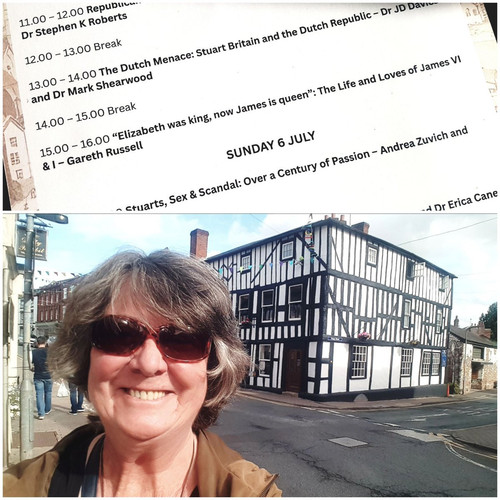 11.00 – 12.00 Republican
Dr Stephen K Roberts
12.00 – 13.00 Break
13.00 – 14.00 The Dutch Menace: Stuart Britain and the Dutch Republic – Dr JD Davies
and Dr Mark Shearwood
14.00 – 15.00 Break
15.00 – 16.00 “Elizabeth was king, now James is queen”: The Life and Loves of James VI
& I – Gareth Russell
SUNDAY 6 JULY
Stuarts, Sex & Scandal: Over a Century of Passion – Andrea Zuvich and
Dr Erica Cane